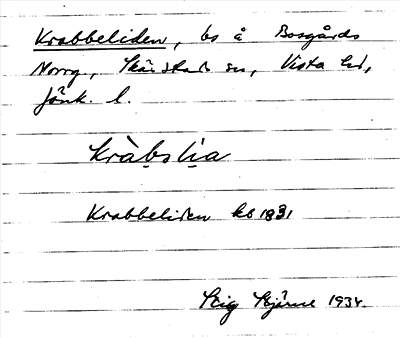 Krabbeliden, ls å Bosgårds
Norrg, Skärstads sn, Vista hd,
Jönk. l.
kràb̥sli̥a
Krabbeliden ks 1831
Stig Stjärne 1934.